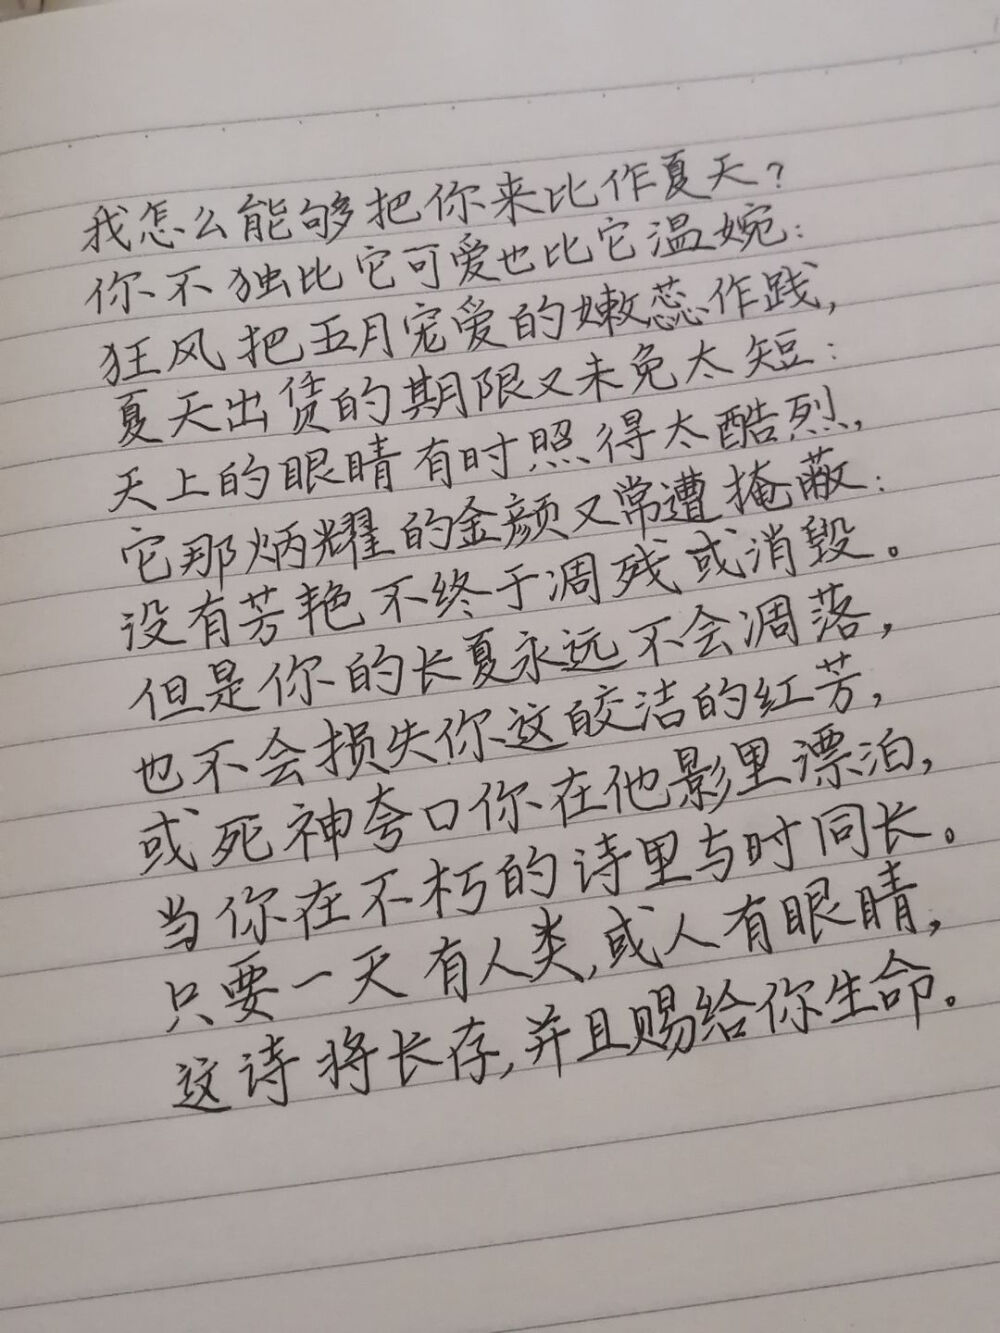 我怎么能够把你来比作夏天？
你不独比它可爱也比它温婉：
狂风把五月宠爱的嫩蕊作践，
夏天出赁的期限又未免太短：
天上的眼睛有时照得太酷烈，
它那炳耀的金颜又常遭掩蔽：
没有芳艳不终于凋残或消毁。
但是你的长夏永远不会凋落，
也不会损失你这皎洁的红芳，
或死神夸口你在他影里漂泊，
当你在不朽的诗里与时同长。
只要一天有人类，或人有眼睛，
这诗将长存，并且赐给你生命。